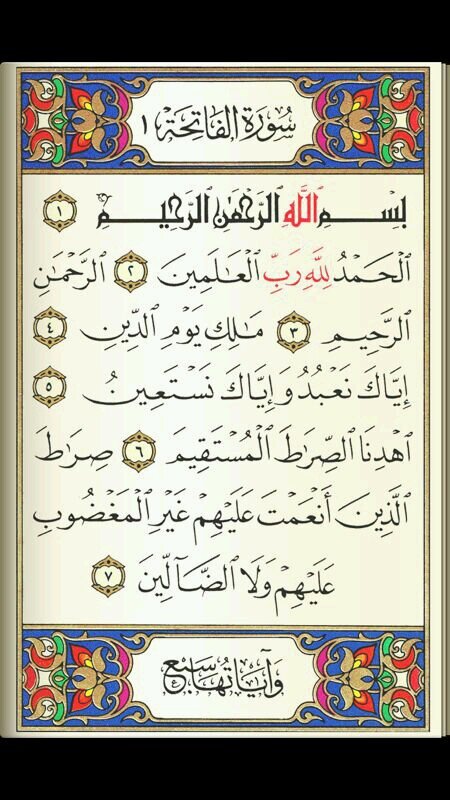 سُورَةُ الفَاتِحَةِ ١
بِسْمِ اللَّهِ الرَّحْمَٰنِ الرَّحِيمِ ١
الْحَمْدُ لِلَّهِ رَبِّ الْعَالَمِينَ ٢ الرَّحْمَٰنِ
الرَّحِيمِ ٣ مَالِكِ يَوْمِ الدِّينِ ٤
إِيَّاكَ نَعْبُدُ وَإِيَّاكَ نَسْتَعِينُ ٥
اهْدِنَا الصِّرَاطَ الْمُسْتَقِيمَ ٦ صِرَاطَ
الَّذِينَ أَنْعَمْتَ عَلَيْهِمْ غَيْرِ الْمَغْضُوبِ
عَلَيْهِمْ وَلَا الضَّآلِّينَ ٧
وَآيَاتُهَا سَبْعٌ